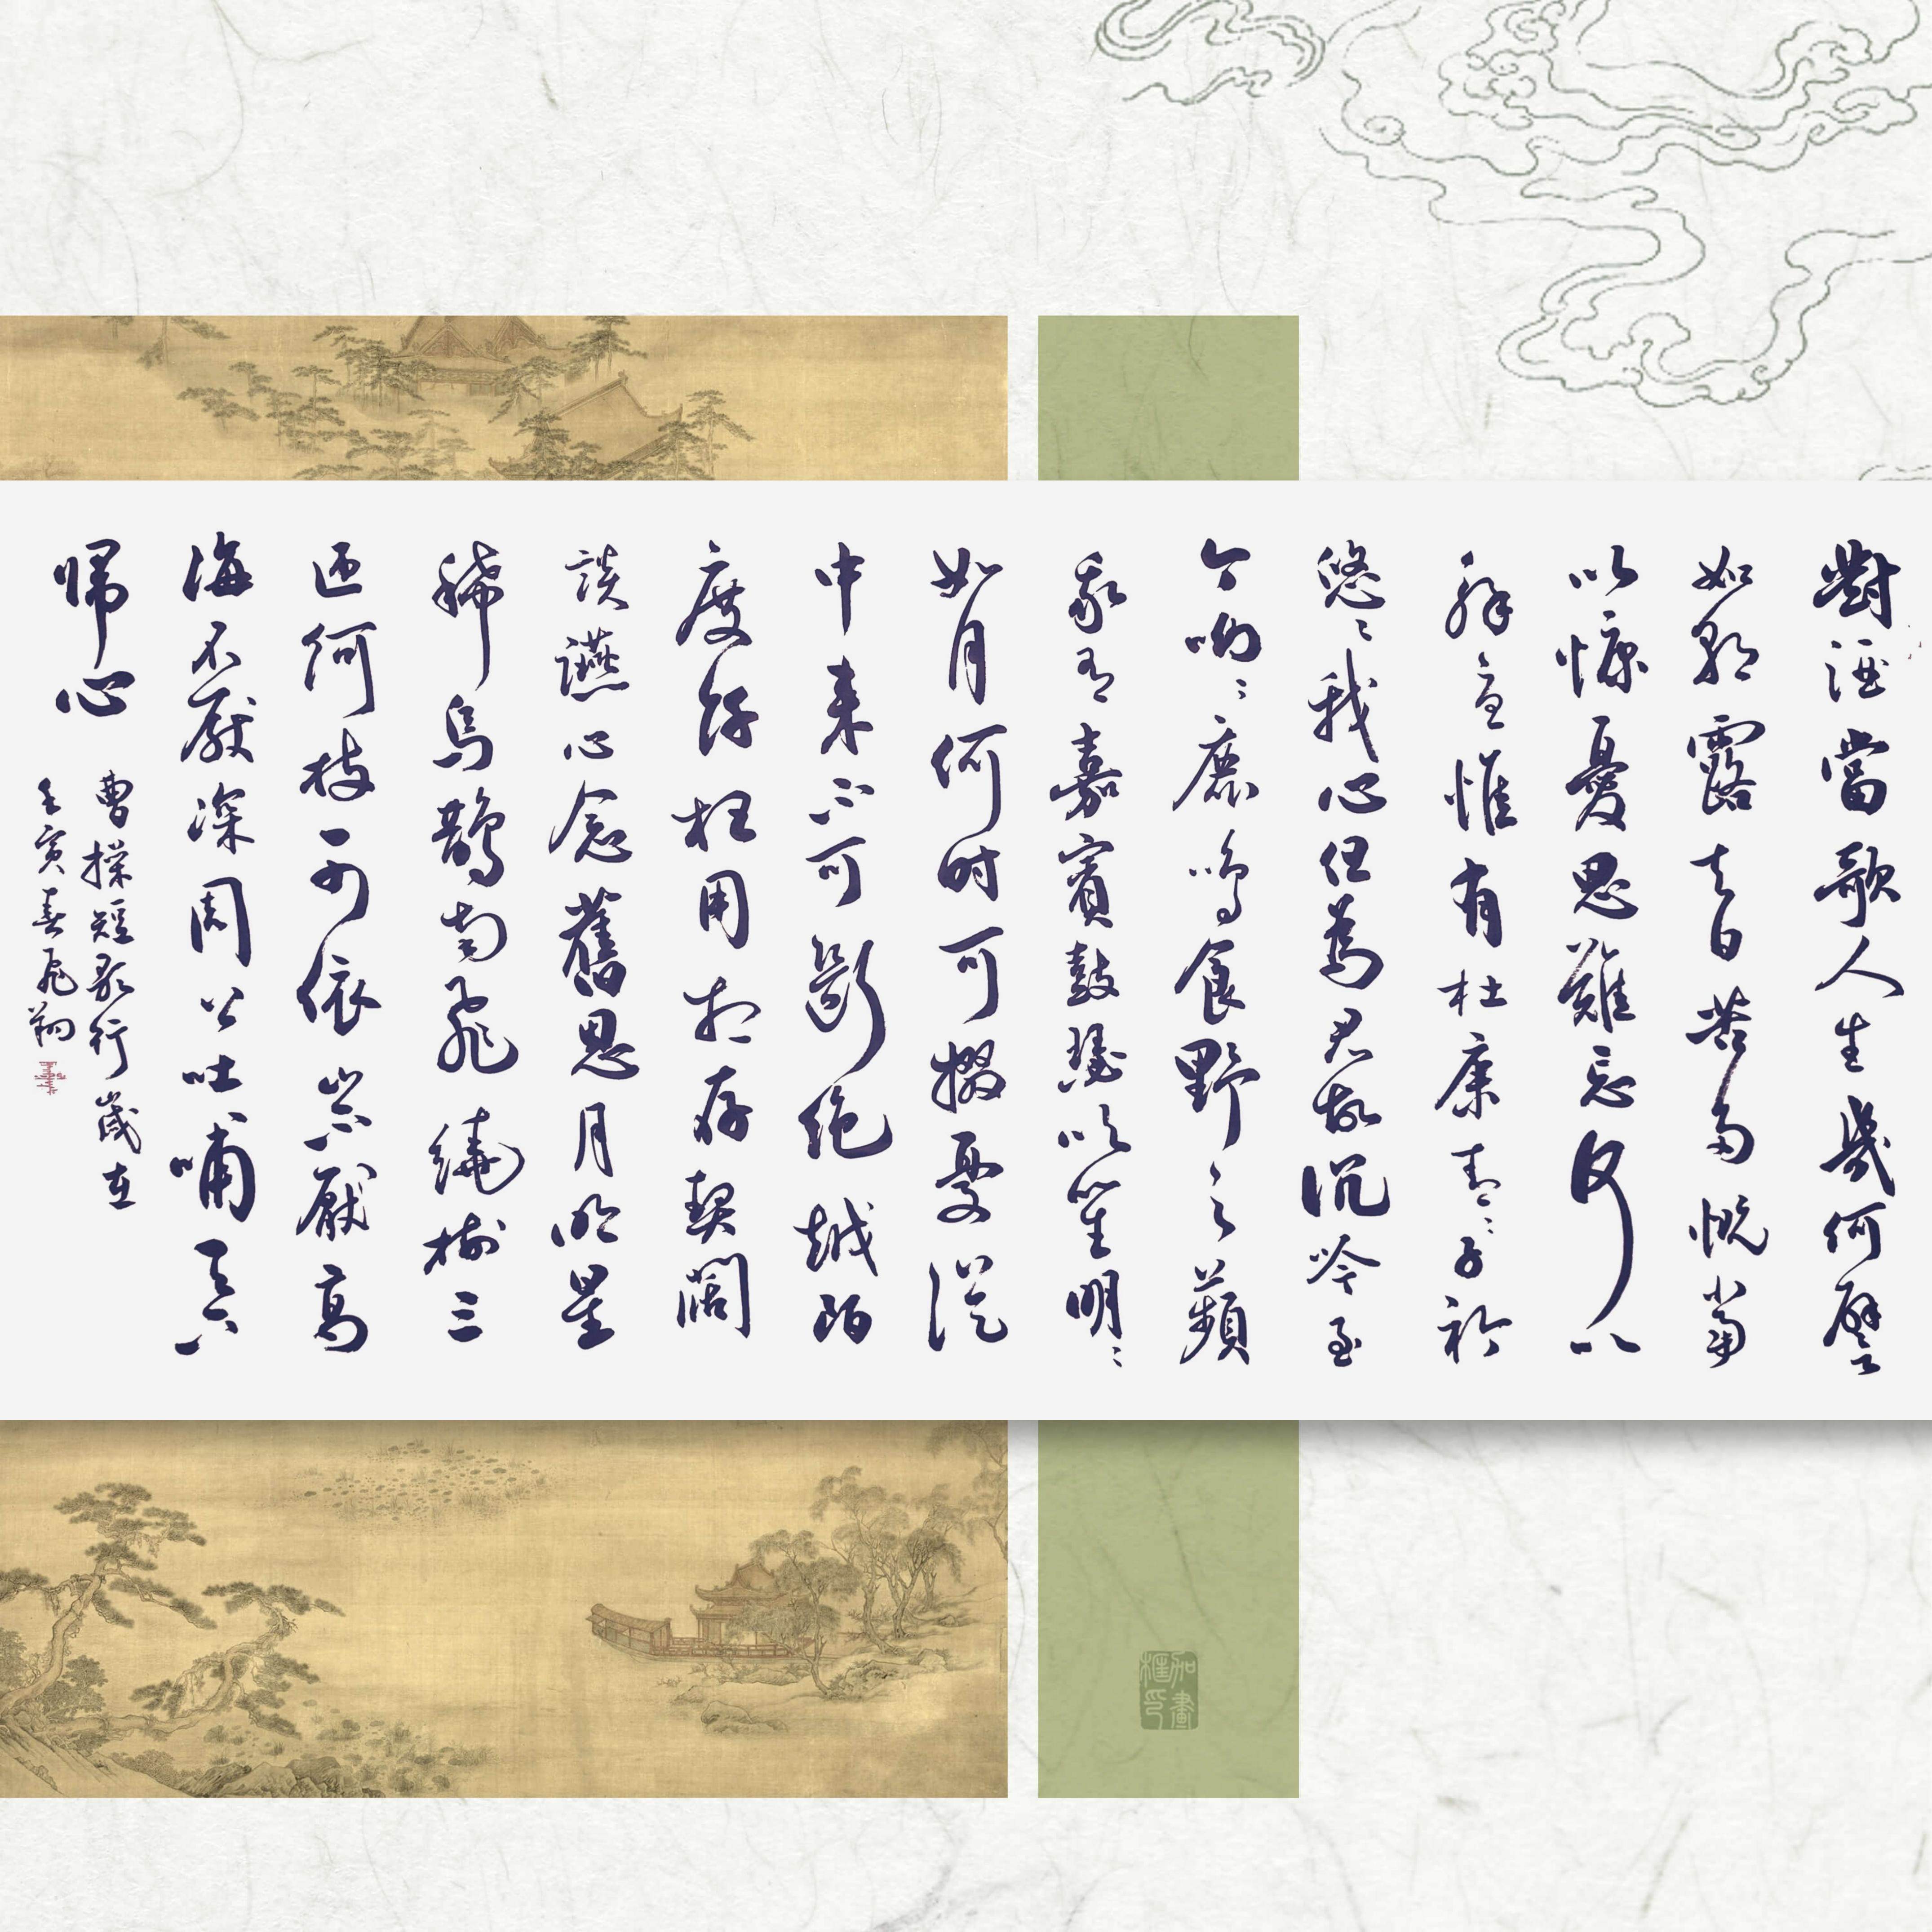 對酒當歌人生幾何譬
如朝露去日苦多慨當
以慷憂思難忘何以
解憂惟有杜康青々子衿
悠々我心但為君故沉吟至
今呦々鹿鳴食野之蘋
我有嘉賓鼓瑟吹笙明々
如月何时可掇憂從
中来不可斷绝越陌
度阡枉用相存契闊
談讌心念舊恩月明星
稀烏鵲南飛繞樹三
匝何枝可依山不厭高
海不厭深周公吐哺天下
歸心
曹操短歌行歲在
壬寅春飛翔
加畫
框印